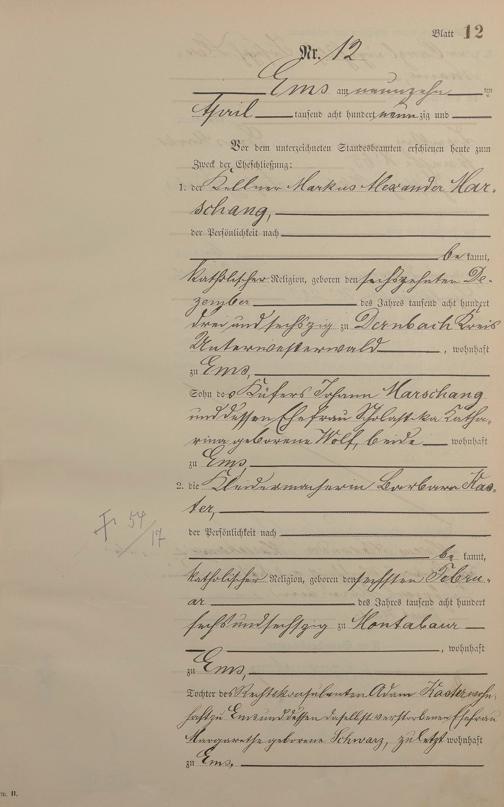 Blatt 12
Nr. 12
Ems am neunzehn ten
April tausend acht hundert neunzig und
Vor dem unterzeichneten Standesbeamten erschienen heute zum
Zweck der Eheschließung:
1. der Kellner Markus Alexander Mar-
schang,
der Persönlichkeit nach
be kannt,
katholischer Religion, geboren den sechszehnten De-
zember des Jahres tausend acht hundert
drei und sechszig zu Dernbach Kreis
Unterwesterwald, wohnhaft
zu Ems,
Sohn des Küfers Johann Marschang
und dessen Ehefrau Scholastika Katha-
rina geborene Wolf, beide wohnhaft
zu Ems,
2. die Kleidermacherin Barbara Kas-
ter,
der Persönlichkeit nach
be kannt,
katholischer Religion, geboren den sechsten Febru-
ar des Jahres tausend acht hundert
sechs und sechszig zu Montabaur
, wohnhaft
zu Ems,
Tochter des Rechtskonsulenten Adam Kaster wohn-
haft zu Ems und dessen daselbst verstorbenen Ehefrau
Margarethe geborene Schwarz, zuletzt wohnhaft
zu Ems.
54
/17
B.